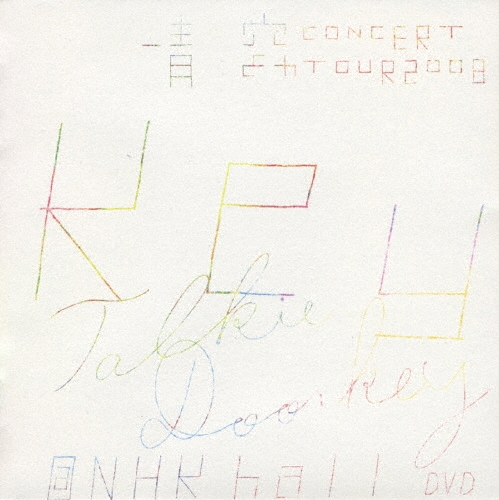 一青 窈 CONCERT
TOUR2008
KEY
Talkie
Doorkey
@NHK hall DVD